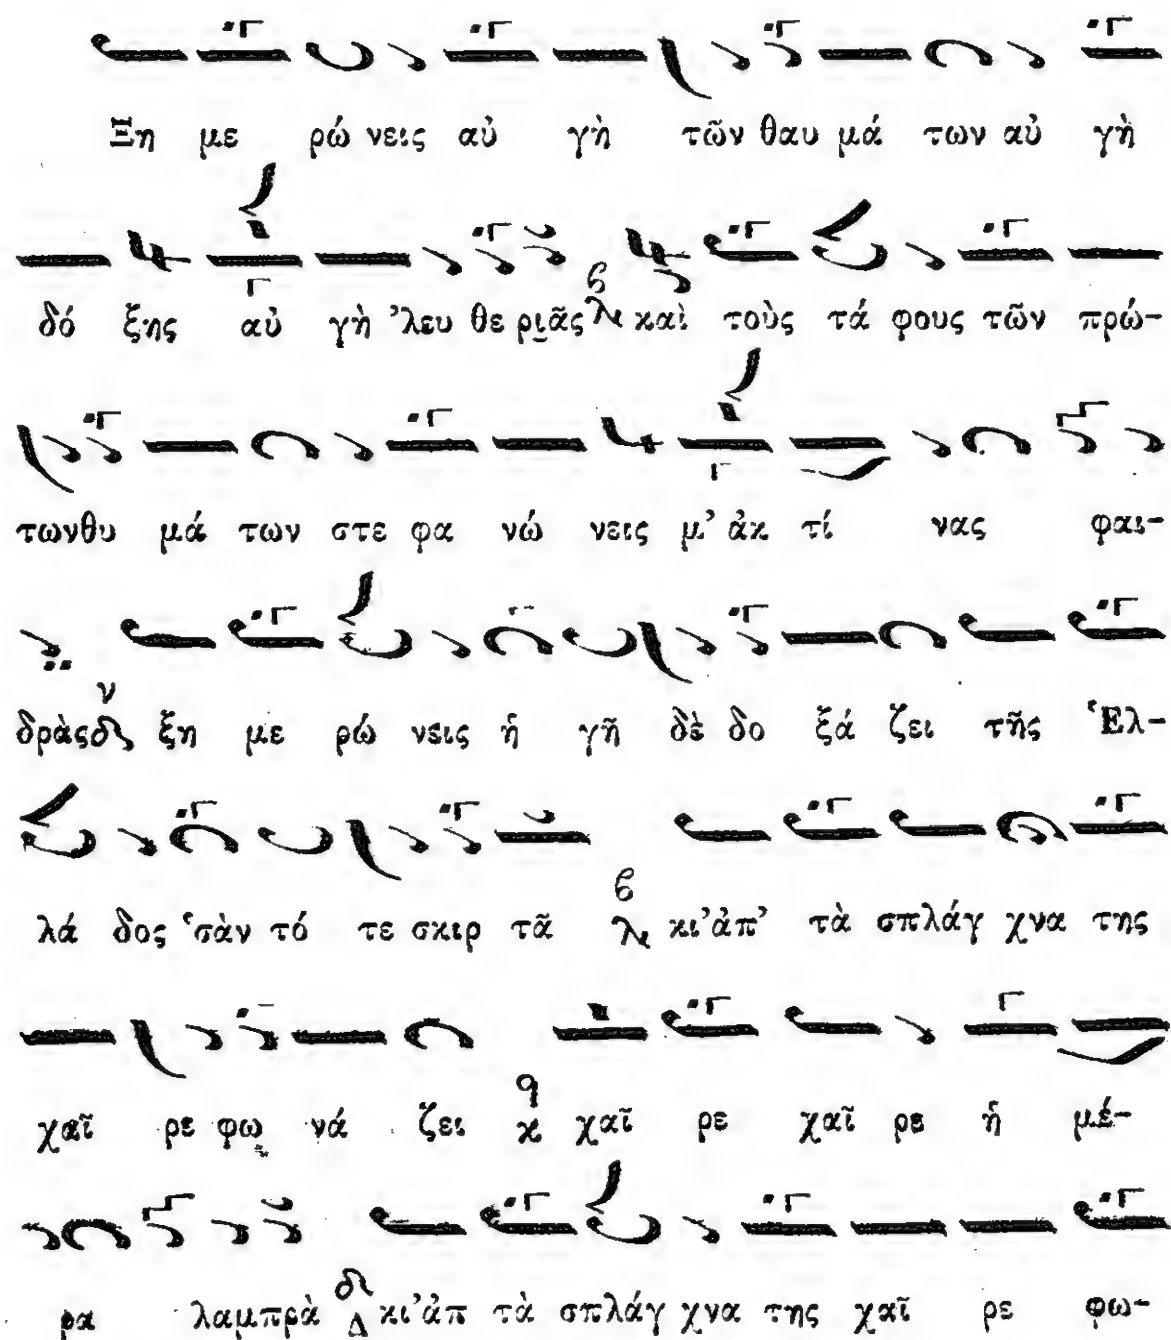 Ξη με ρώ νεις αὐ γὴ τῶν θαυ μά των αὐ γὴ
δό ξης αὐ γὴ ’λευ θε ρι̯ᾶς καὶ τοὺς τά φους τῶν πρώ-
τωνθυ μά των στε φα νώ νεις μ’ ἀκ τί νας φαι-
δρὰς ξη με ρώ νεις ἡ γῆ δὲ δο ξά ζει τῆς Ἑλ-
λά δος ‘σὰν τό τε σκιρ τᾶ κι’ἀπ’ τὰ σπλάγ χνα της
χαῖ ρε φω νά ζει χαῖ ρε χαῖ ρε ἡ μέ-
ρα λαμπρὰ κι’ἀπ τὰ σπλάγ χνα της χαῖ ρε φω-